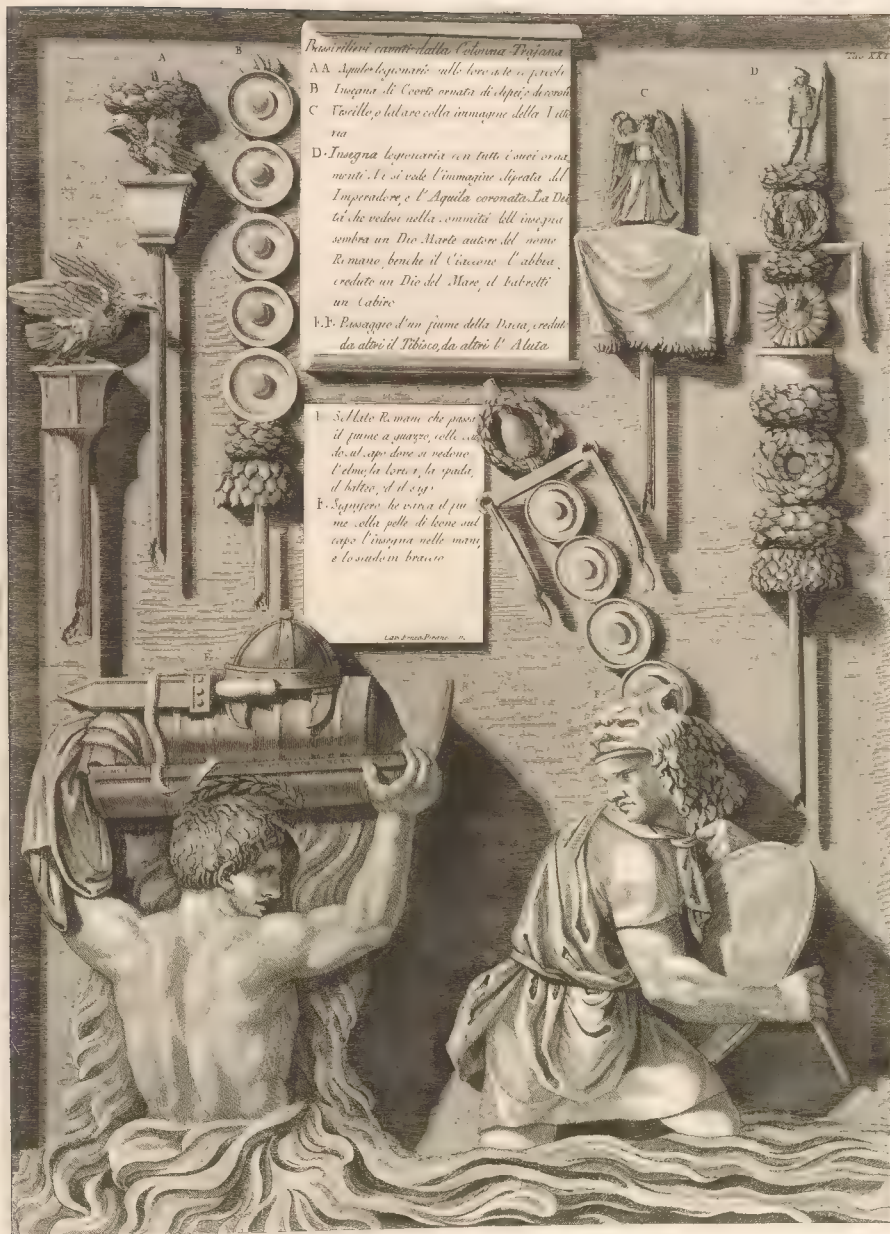 Bassirilievi cavati dalla Colonna Trajana
AA Aquile legionarie sulle loro aste e
B Insegna di Coorte ornata di clipei, e di corone
C Vessillo, o labaro colla immagine della Vitto
ria
D. Insegna legionaria con tutti i suoi orna
menti. Vi si vede l'immagine clipeata del
Imperadore, e l'Aquila coronata. La Dei
tà che vedesi nella sommità dell'insegna
sembra un Dio Marte autore del nome
Romano, benche il Ciaccone l'abbia
creduto un Dio del Mare, il Fabretti
un Cabiro
E.F. Passaggio d'un fiume della Dacia, creduto
da altri il Tibisco, da altri l'Aluta
Tav. XXI
A
B
C
D
A
Soldato Romano che passa
il fiume a guazzo, colle
sul capo dove si vedono
l'elmo, la lorica, la spada,
il balteo, ed il
F. Signifero che varca il fiu
me colla pelle di leone sul
capo l'insegna nelle mani,
e lo scudo in braccio
E
F